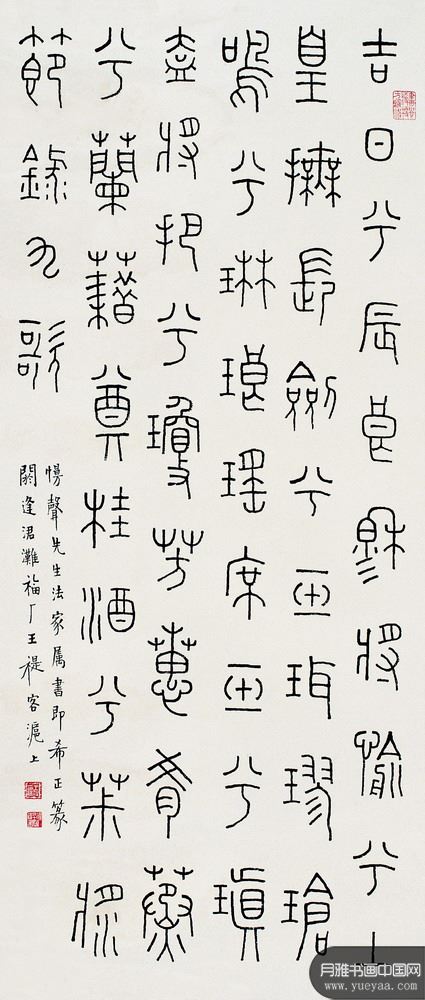 吉日兮辰良穆將愉兮上
皇撫長劍兮玉珥璆瑲
鳴兮琳琅瑤席玉兮瑱
盍將把兮瓊芳蕙肴蒸
兮蘭藉奠桂酒兮茮漿
節錄九歌
聲先生法家屬書即希正篆
閼逢涒灘福厂王禔客滬上
月雅书画中国网
www.yueyaa.com